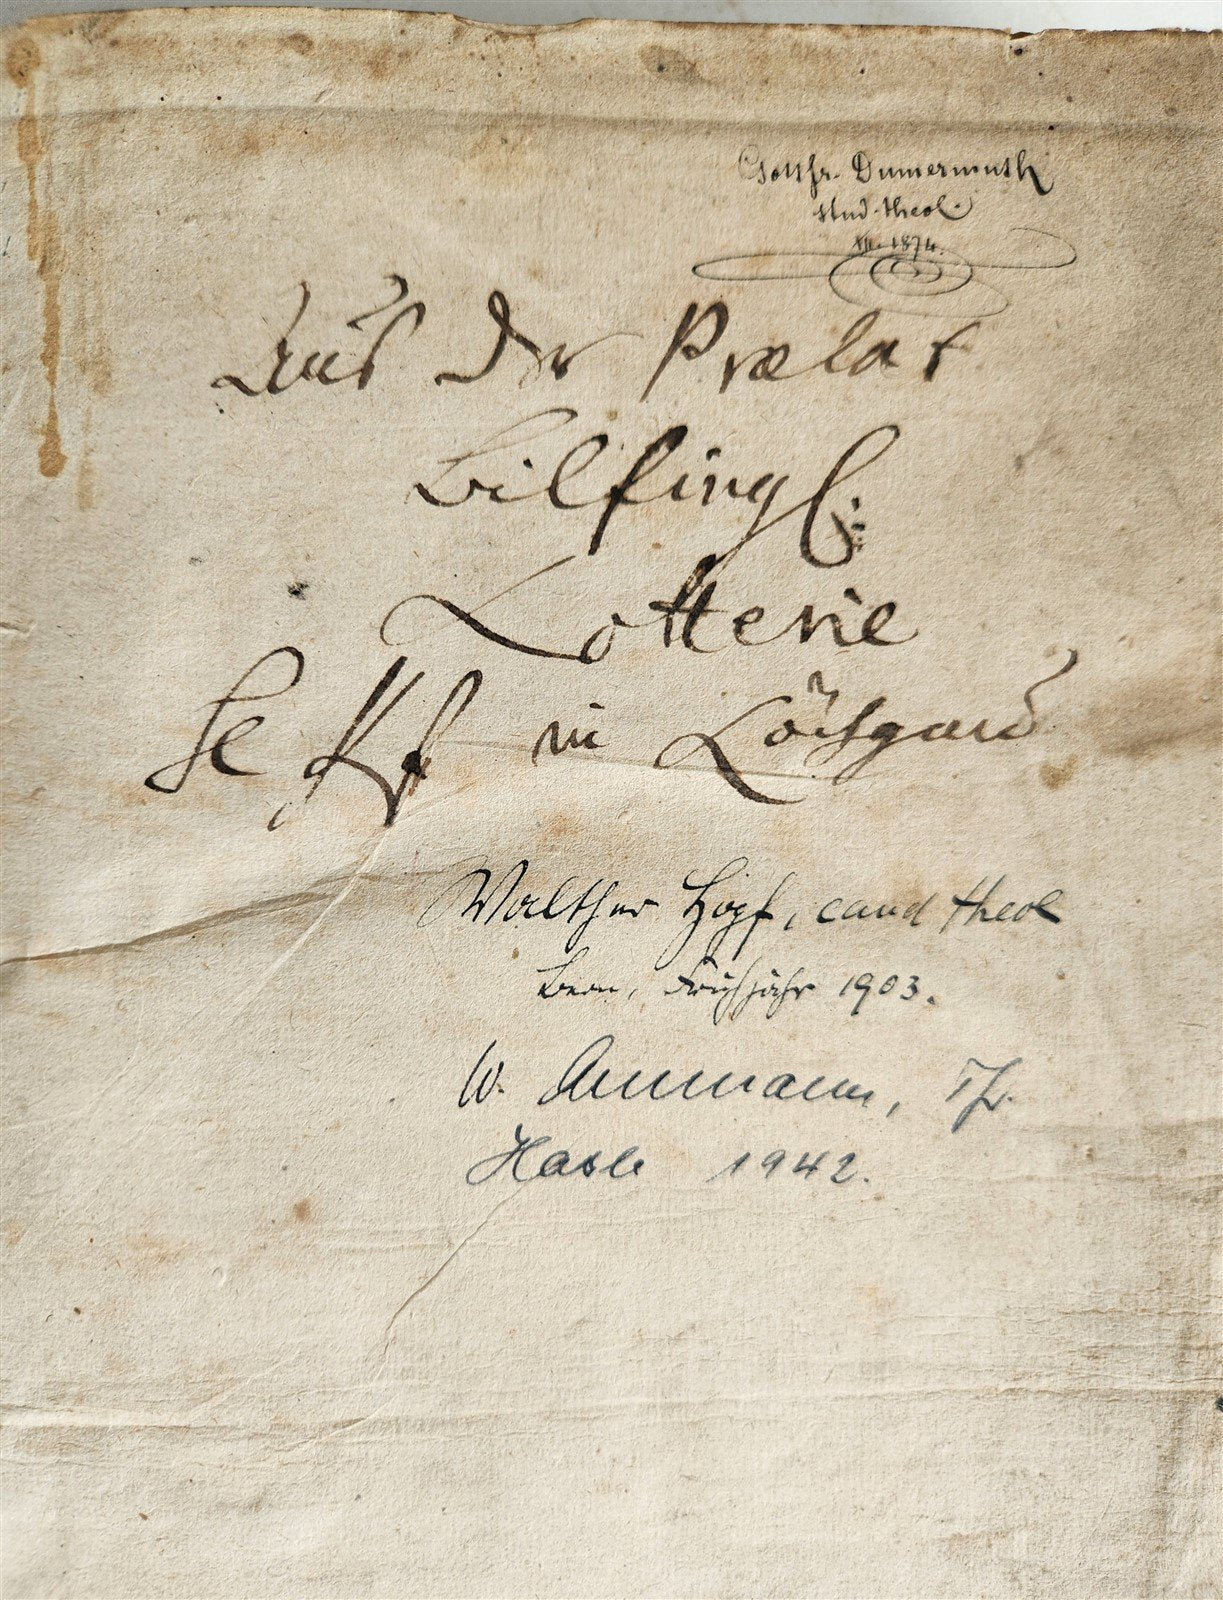 Gottfr. Dumermuth
stud. theol.
XII. 1874.
Aus der Praelat
Bilfing
Lotterie
in Löchgau
Walther Hopf, cand theol
Bern, Frühjahr 1903.
W. Ammann, Pfr.
Hasle 1942.